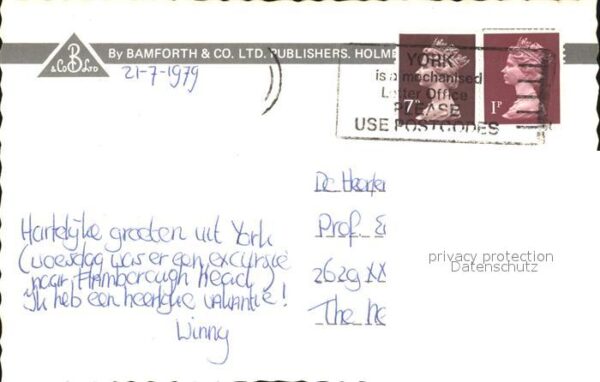 B
& Co LTD
By BAMFORTH & CO. LTD. PUBLISHERS. HOLM
21-7-1979
YORK
is a mechanised
Letter Office
PLEASE
USE POSTCODES
7P
1P
De Heer
Prof.
2629 XX
The Ne
privacy protection
Datenschutz
Hartelijke groeten uit York
(woesdag was er een excursie
naar Flamborough Head)
Ik heb een heerlijke vakantie!
Winny